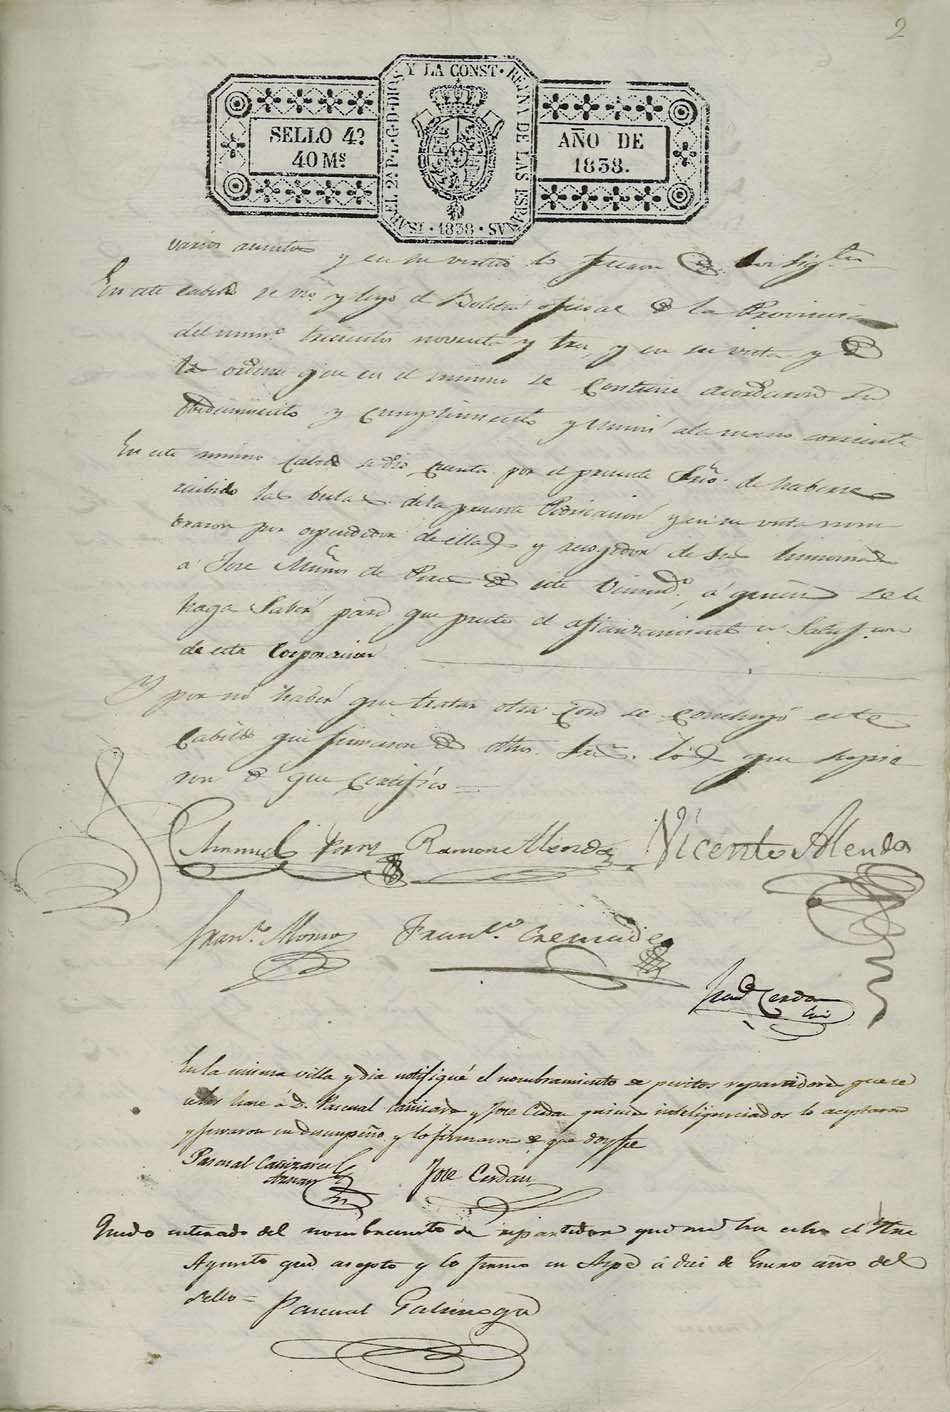 2
ISABEL 2ª P.L.G.D.DIOS Y LA CONST. REINA DE LAS ESPAÑAS
SELLO 4º
40 Ms.
AÑO DE
1838.
1838
varios asuntos y en su virtud lo hicieron de los sigtes
En este cabildo se vio y leyo el Boletin oficial de la Provincia
del numº trescientos noventa y tres y en su vista y de
la orden que en el mismo se contiene acordaron su
obedecimiento y cumplimiento y unirá a la mano corriente
En este mismo Cabildo se dio cuenta por el presente Srio de haberse
recibido las bulas de la presente Predicacion y en su vista nom-
braron por espendedor de ellas y recojedor de su limosna
a Jose Muñoz de Perez de este Vecindo, á quien se le
haga Saber para que preste el afianzamiento a Satisf.cion
de esta Corporacion
Y por no haber que tratar otra Cosa se Concluyó este
Cabildo que firmaron de dhos. Sres. los que supie-
ron de que Certifico =
Manuel Ramon Alenda Vicente Alenda
Franco Alonso Franco Cremades
Franco Cerdan
En la misma villa y dia notifiqué el nombramiento de peritos repartidores que se
les hace a D. Pascual Cañizares y Jose Cerdan quienes inteligenciados lo aceptaron
y juraron su desempeño y lo firmaron de que doy fe
Pascual Cañizares
Jose Cerdan
Quedo enterado del nombramiento de repartidor que me ha echo el Itre
Ayunto que asepto y lo firmo en Aspe á diez de Enero año del
Sello =
Pascual Galinoga